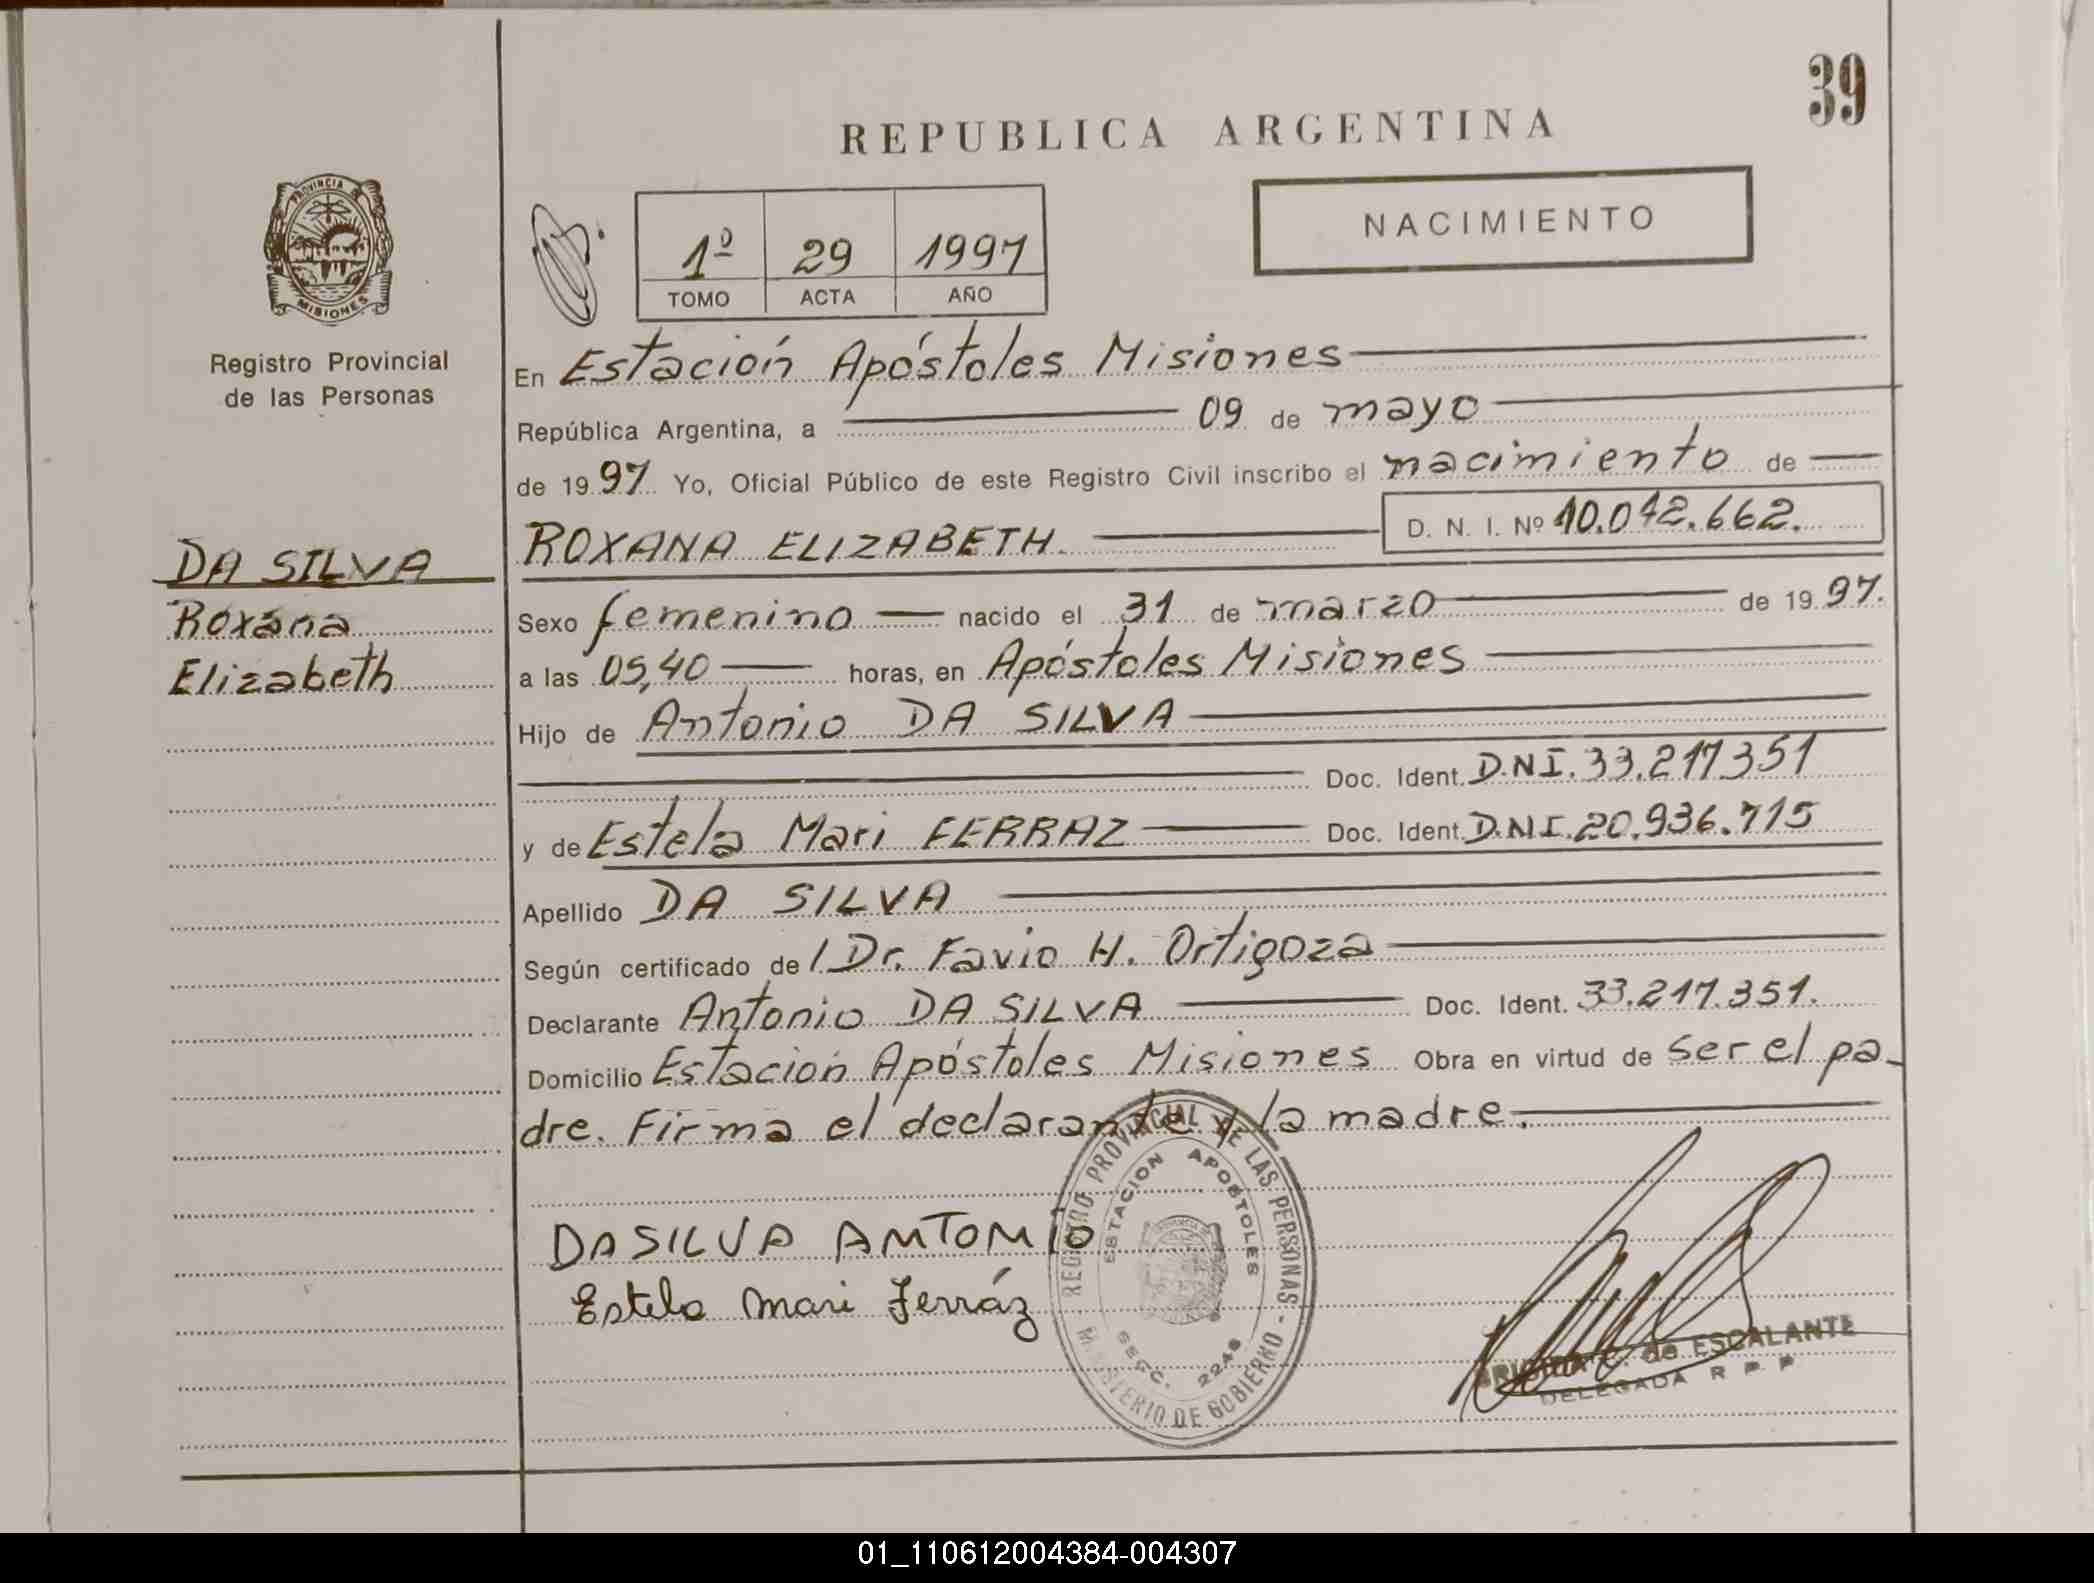 39
REPUBLICA ARGENTINA
PROVINCIA DE
MISIONES
Registro Provincial
de las Personas
1º 29 1997
TOMO ACTA AÑO
NACIMIENTO
En Estación Apóstoles Misiones
República Argentina, a 09 de mayo
de 1997 Yo, Oficial Público de este Registro Civil inscribo el nacimiento de
DA SILVA
Roxana
Elizabeth
ROXANA ELIZABETH. D. N. I. Nº 40.042.662.
Sexo femenino nacido el 31 de marzo de 1997.
a las 05,40 horas, en Apóstoles Misiones
Hijo de Antonio DA SILVA
Doc. Ident. D.N.I. 33.217.351
y de Estela Mari FERRAZ Doc. Ident. D.N.I. 20.936.715
Apellido DA SILVA
Según certificado de l Dr. Favio H. Ortigoza
Declarante Antonio DA SILVA Doc. Ident. 33.217.351.
Domicilio Estación Apóstoles Misiones Obra en virtud de ser el pa-
dre. Firma el declarante y la madre.
DASILVA ANTONIO
Estela Mari Ferráz
REGISTRO PROVINCIAL DE LAS PERSONAS - MINISTERIO DE GOBIERNO -
ESTACION APOSTOLES
SECC. 2246
de ESCALANTE
DELEGADA R P P
01_110612004384-004307